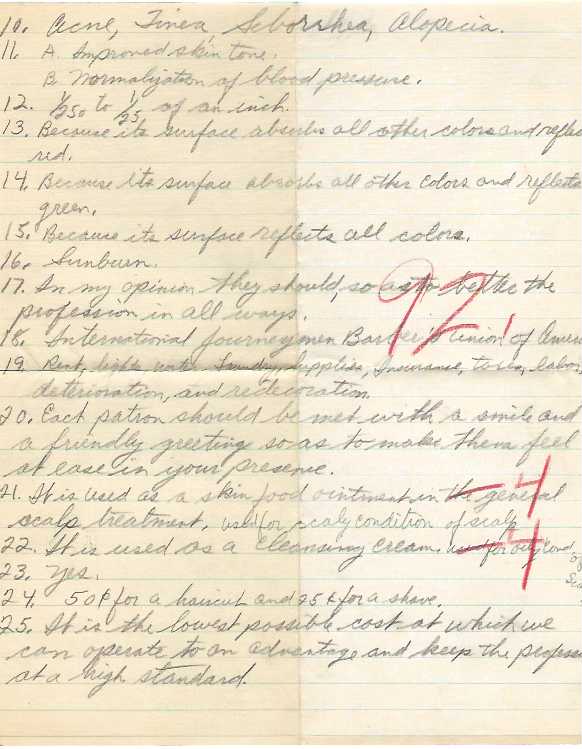 10. Acne, Tinea, Seborrhea, Alopecia.
11. A. Improved skin tone.
B. Normalization of blood pressure.
12. 1/250 to 1/25 of an inch.
13. Because its surface absorbs all other colors and reflec
red.
14. Because its surface absorbs all other colors and reflects
green.
15. Because its surface reflects all colors.
16. Sunburn.
17. In my opinion they should, so as to better the
profession in all ways.
92.
18. International Journeymen Barber's Union of Ameri
19. Rent, lights, water, laundry, supplies, Insurance, taxes, labor,
deterioration, and redecoration.
20. Each patron should be met with a smile and
a friendly greeting so as to make them feel
at ease in your presence.
21. It is used as a skin food ointment in the general
-4
scalp treatment. used for scaly condition of scalp
22. It is used as a cleansing cream. used for oily cond.
-4
of
Sca
23. Yes.
24. 50¢ for a haircut and 25¢ for a shave.
25. It is the lowest possible cost at which we
can operate to an advantage and keep the profess
at a high standard.